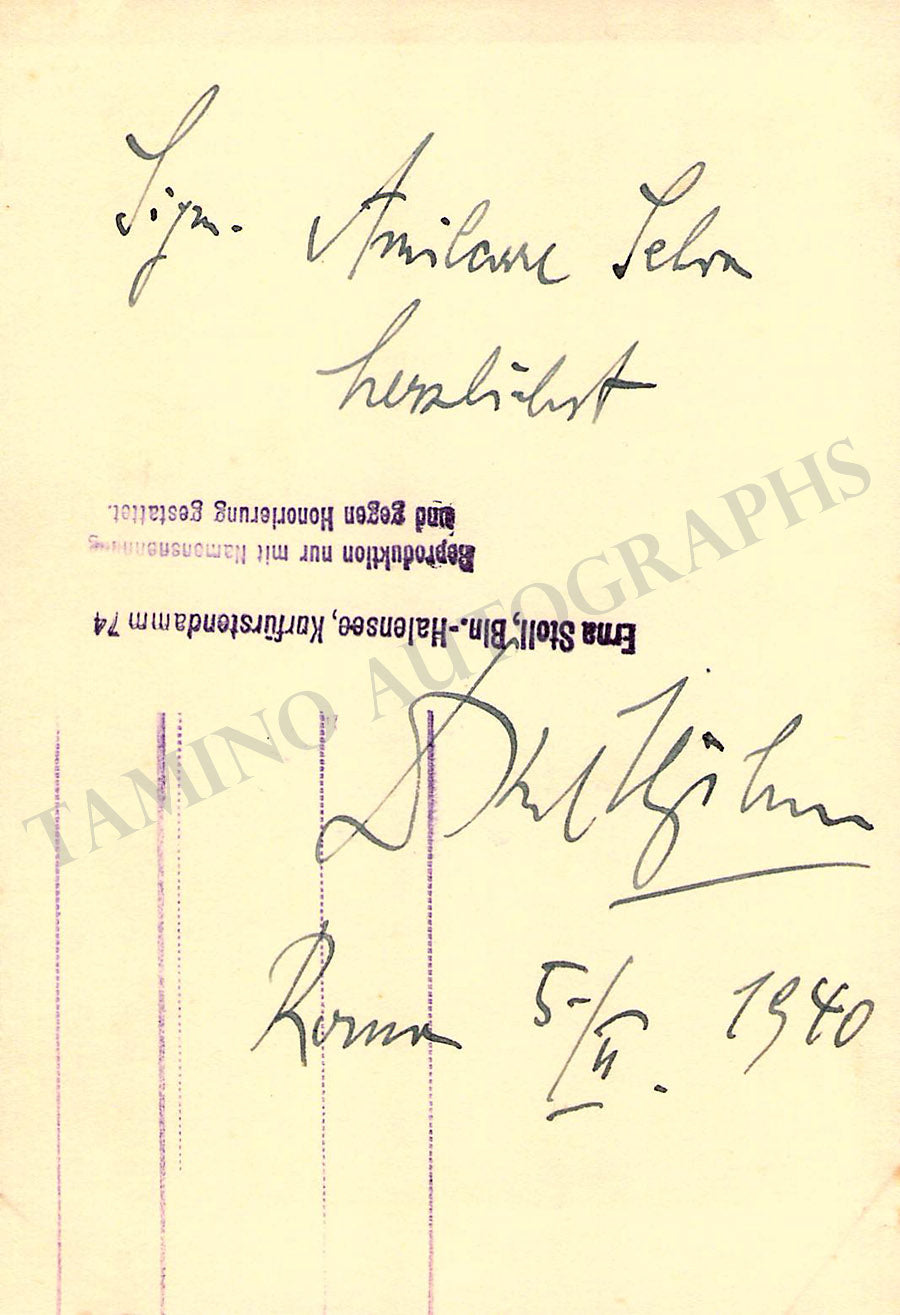 Sign. Amilcare Selva
herzlichst
und gegen Honorierung gestattet.
Reproduktion nur mit Namensnennung
Erna Stoll, Bln.-Halensee, Kurfürstendamm 74
TAMINO AUTOGRAPHS
Roma 5/II. 1940